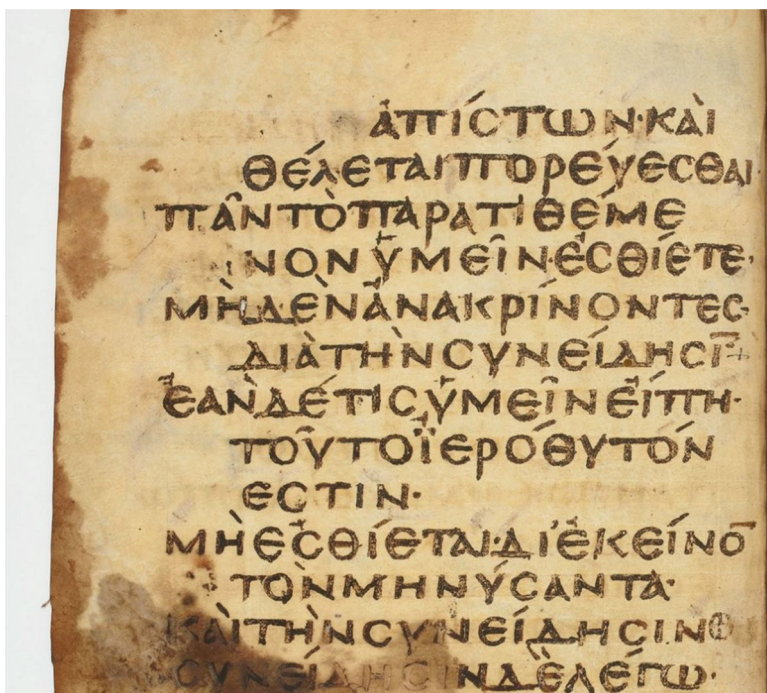 ἀπίστων·καὶ
θέλεταιπορεύεσθαι
πᾶντὸπαρατιθέμε
νονὑμεῖνἐσθίετε·
μὴδὲνἀνακρίνοντες·
διὰτὴνσυνείδησῑ
ἐὰνδέτιςὑμεῖνεἴπη·
τοῦτοϊερόθυτόν
εστιν·
μὴἐσθίεται·δι'ἐκεῖνο̄
τὸνμηνύσαντα·
καὶτὴνσυνείδησιν
συνείδησινδὲλέγω·